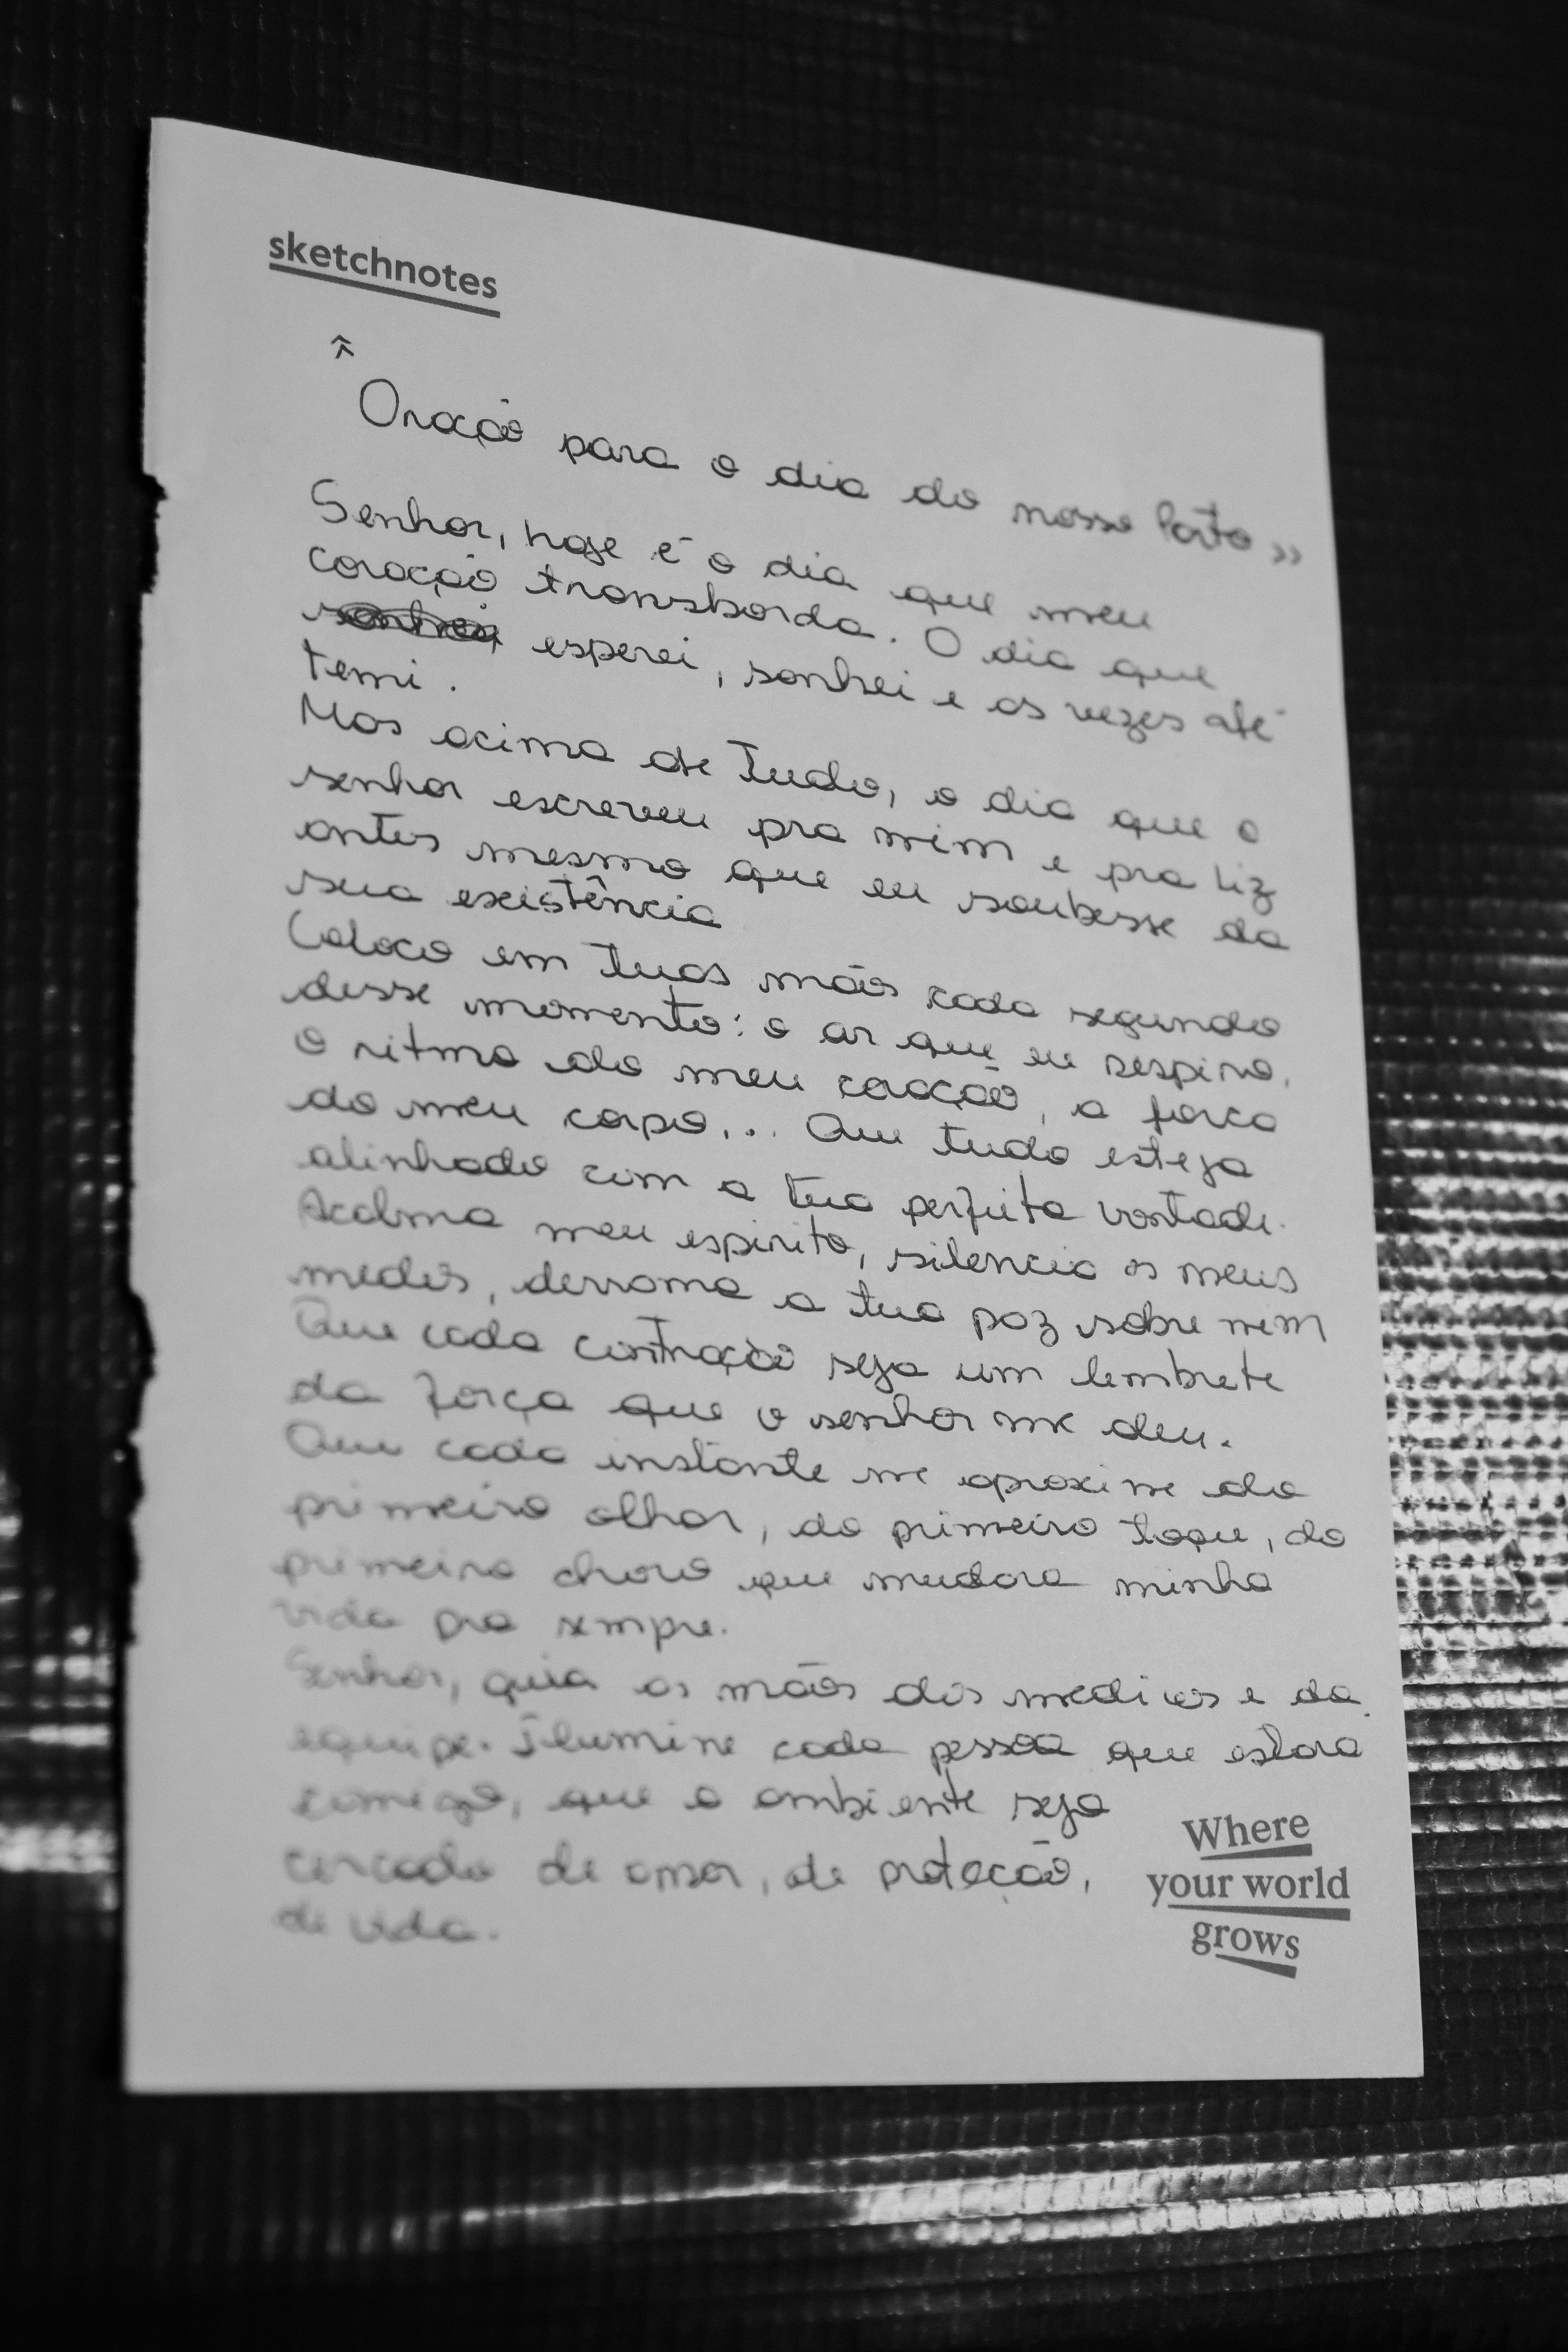 sketchnotes
Oração para o dia do nosso Parto »
Senhor, hoje é o dia que meu
coração transborda. O dia que
esperei, sonhei e as vezes até
temi.
Mas acima de Tudo, o dia que o
senhor escreveu pra mim e pra Liz
antes mesmo que eu soubesse da
sua existência
Coloco em tuas mãos cada segundo
desse momento: o ar que eu respiro,
o ritmo do meu coração, a força
do meu corpo... Que tudo esteja
alinhado com a tua perfeita vontade.
Acalma meu espirito, silencia os meus
medos, derrama a tua paz sobre mim
Que cada contração seja um lembrete
da força que o senhor me deu.
Que cada instante me aproxime do
primeiro olhar, do primeiro toque, do
primeiro choro que mudara minha
vida pra sempre.
Senhor, guia as mãos dos medicos e da
equipe. Ilumine cada pessoa que estara
comigo, que o ambiente seja
cercado de amor, de proteção,
de vida.
Where
your world
grows